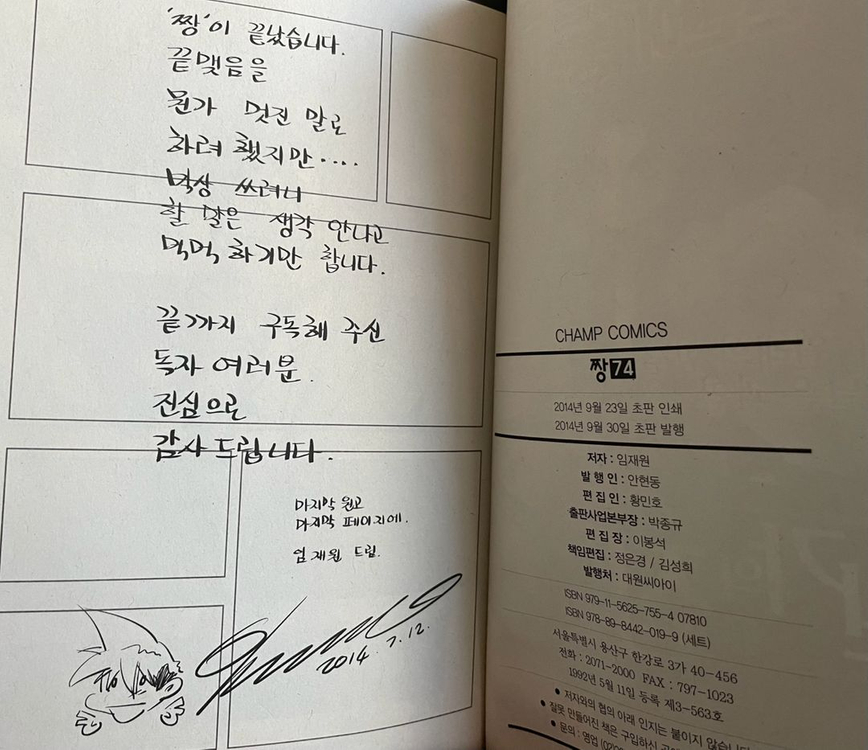 '짱'이 끝났습니다.
끝맺음을
뭔가 멋진 말로
하려 했지만....
막상 쓰려니
할 말은 생각 안나고
먹먹하기만 합니다.
끝까지 구독해 주신
독자 여러분.
진심으로
감사 드립니다.
마지막 원고
마지막 페이지에.
임재원 드림.
2014. 7. 12.
CHAMP COMICS
짱 74
2014년 9월 23일 초판 인쇄
2014년 9월 30일 초판 발행
저자 : 임재원
발행인 : 안현동
편집인 : 황민호
출판사업본부장 : 박종규
편집장 : 이봉석
책임편집 : 정은경 / 김성희
발행처 : 대원씨아이
ISBN 979-11-5625-755-4 07810
ISBN 978-89-8442-019-9 (세트)
서울특별시 용산구 한강로 3가 40-456
전화 : 2071-2000 FAX : 797-1023
1992년 5월 11일 등록 제3-563호
● 저자와의 협의 아래 인지는 붙이지 않습니다
● 잘못 만들어진 책은 구입하신
● 문의 : 영업